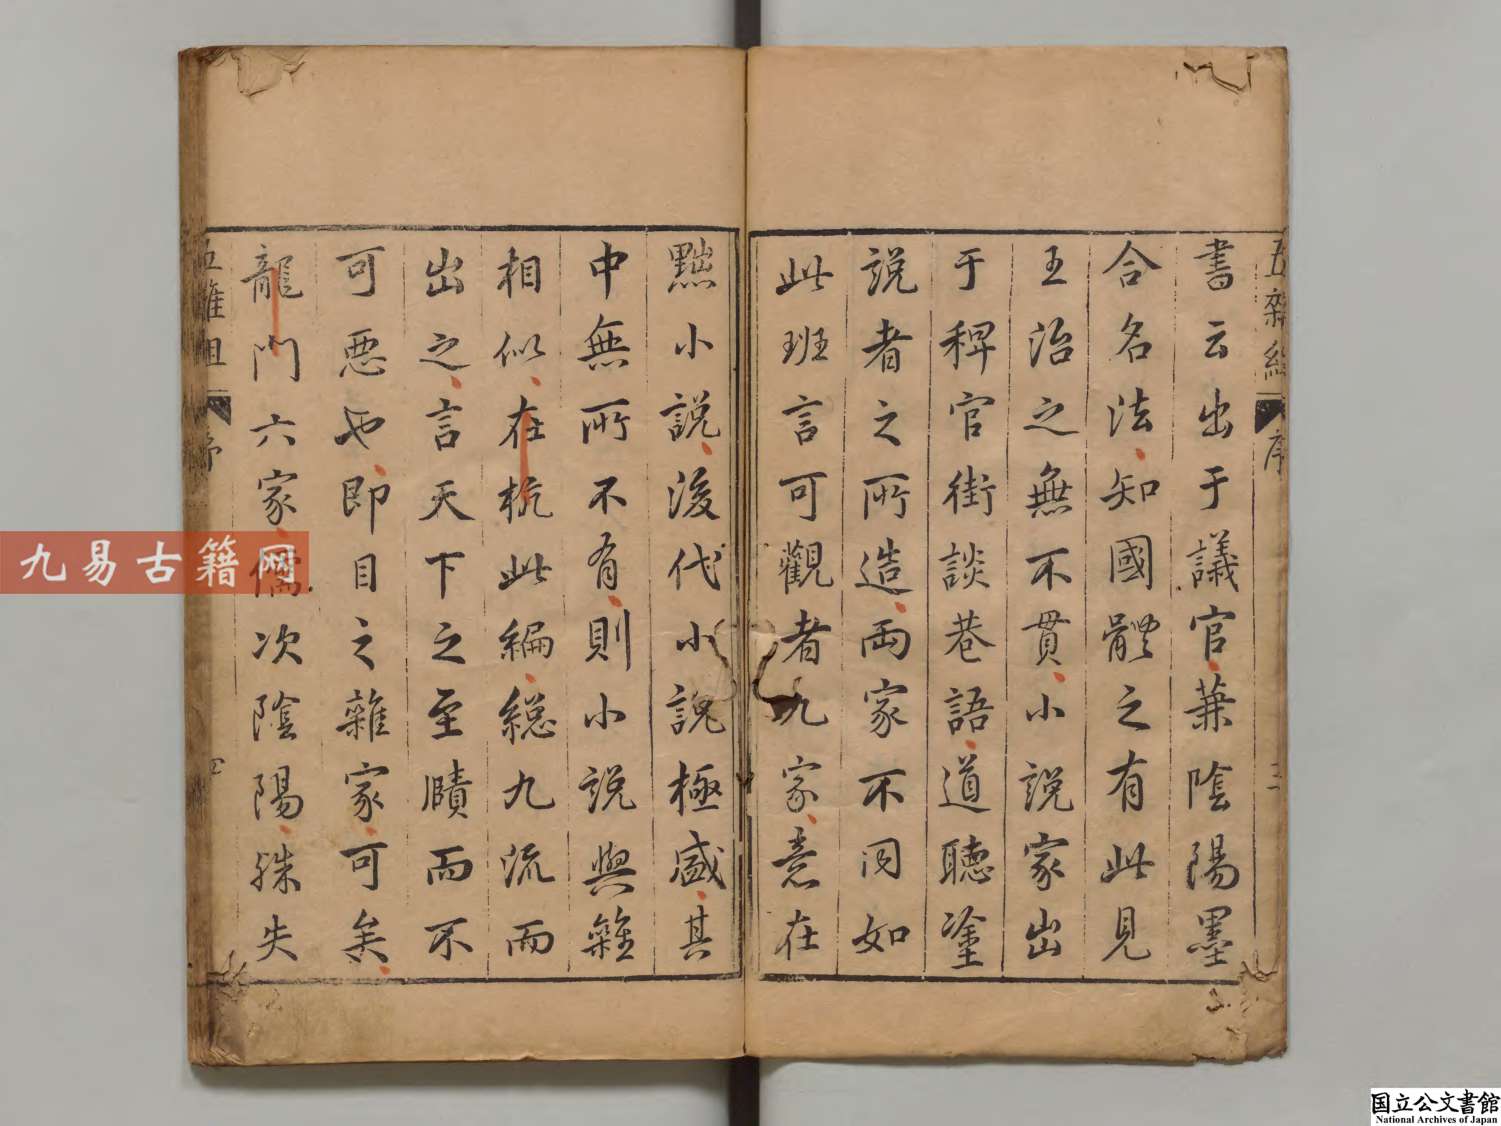 書云出于議官兼陰陽墨
合名法知國體之有此見
王治之無不貫小說家出
于稗官街談巷語道聽塗
說者之所造兩家不同如
此班言可觀者九家意在
黜小說後代小說極盛其
中無所不有則小說與雜
相似在杭此編總九流而
出之言天下之至賾而不
可惡也即目之雜家可矣
龍門六家儒次陰陽殊失
五雜組
序
三
五雜組
序
四
九易古籍网
国立公文書館
National Archives of Japan